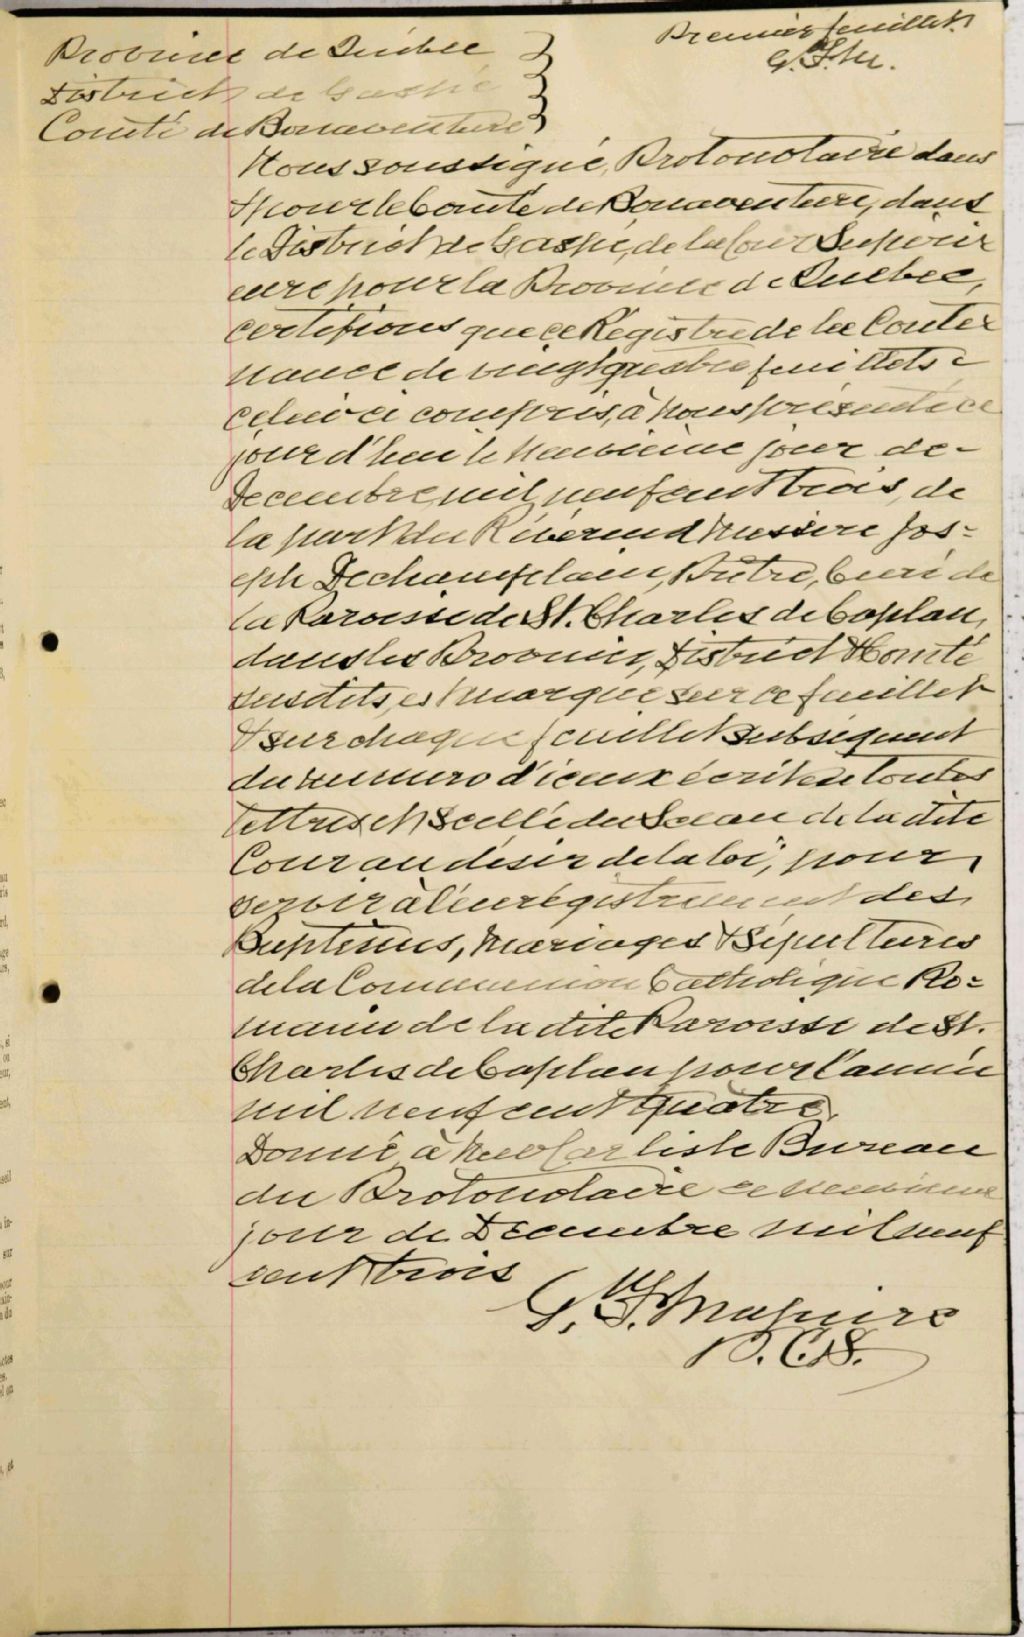 Premier feuillet.
G. F. M.
Province de Québec
District de Gaspé
Comté de Bonaventure
Nous soussigné, Protonotaire dans
& pour le Comté de Bonaventure, dans
le District de Gaspé, de la Cour Supéri
eure pour la Province de Québec,
certifions que ce Régistre de la Conte
nance de vingt quatre feuillets -
celui ci compris, à nous présenté ce
jourd'hui le neuvième jour de -
Decembre mil neuf cent trois, de
la part du Révérend Messire Jos=
eph Dechamplain, Ptre, Curé de
la Paroisse de St. Charles de Caplan,
dans les Province, District & Comté
susdits, est marqué sur ce feuillet
& sur chaque feuillet subséquent
du numero d'iceux écrit en toutes
lettres et scellé du Sceau de la dite
Cour au désir de la loi, pour
servir à l'enrégistrement des
Baptêmes, Mariages & Sépultures
de la Communion Catholique Ro=
maine de la dite Paroisse de St.
Charles de Caplan pour l'année
mil neuf cent quatre.
Donné à New Carlisle Bureau
du Protonotaire ce neuvième
jour de Décembre mil neuf
cent trois
G. F. Maguire
P. C. S.